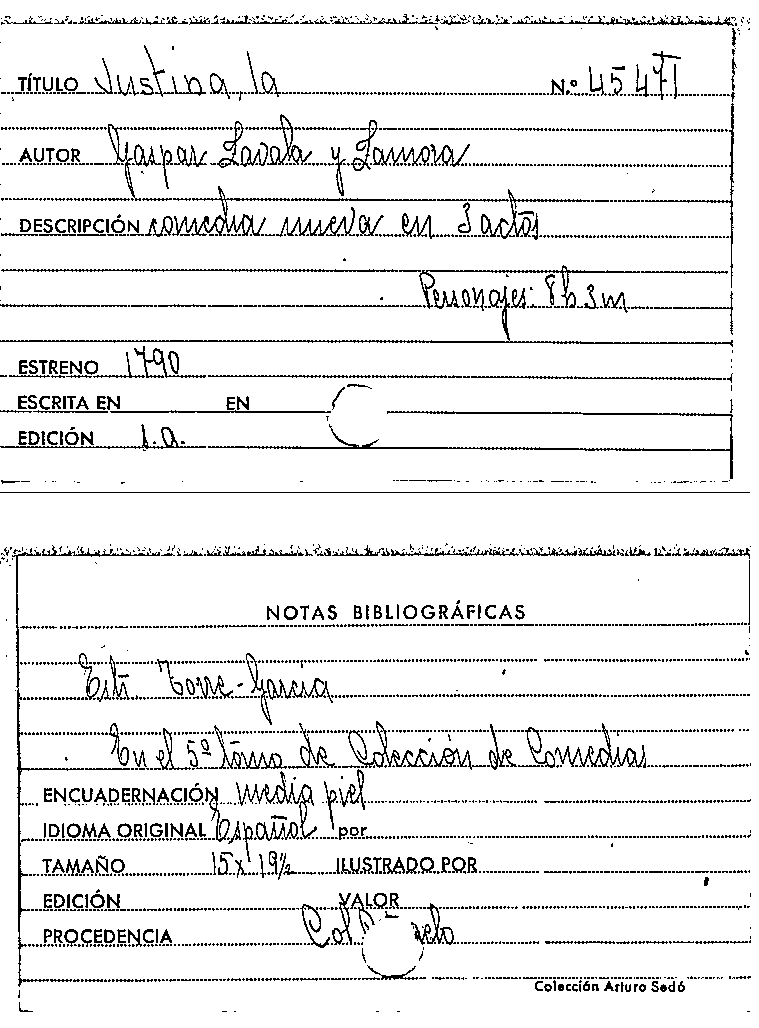 TÍTULO Justina, la N.º 45471
AUTOR Gaspar Zavala y Zamora
DESCRIPCIÓN comedia nueva en 3 actos
Personajes: 8h 3m
ESTRENO 1790
ESCRITA EN EN
EDICIÓN s.a.
NOTAS BIBLIOGRÁFICAS
Torre-García
En el 5º tomo de Colección de Comedias
ENCUADERNACIÓN media piel
IDIOMA ORIGINAL Español por
TAMAÑO 15x19½ ILUSTRADO POR
EDICIÓN VALOR
PROCEDENCIA Col.
Colección Arturo Sedó